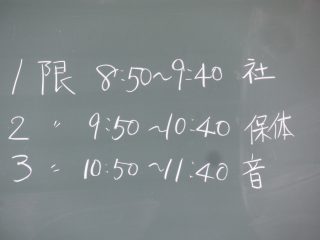 1限 8:50〜9:40 社
2 〃 9:50〜10:40 保体
3 〃 10:50〜11:40 音